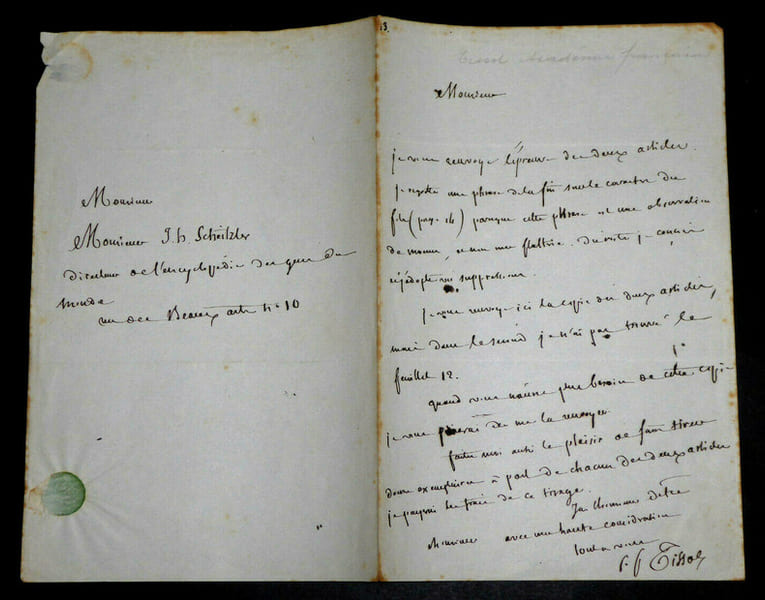 Monsieur
Monsieur J. h. Schnitzler
directeur de l'encyclopédie des gens du
monde
rue des Beaux arts n° 10
13.
Tissot Académie française
Monsieur
je vous renvoye l'épreuve des deux articles.
je regrette une phrase de la fin sur le caractère du
fils (page 14) parceque cette phrase est une observation
de mœurs, et non une flatterie. Du reste je
et j'adopte vos suppressions.
je vous renvoye ici la copie des deux articles,
mais dans le second je n'ai pas trouvé le
feuillet 12.
quand vous n'aurez plus besoin de cette copie
je vous prierai de me la renvoyer
faites moi aussi le plaisir de faire tirer
douze exemplaires à part de chacun des deux articles
je payerai les frais de ce tirage.
J'ai l'honneur d'être
Monsieur avec une haute considération
tout à vous
P. f Tissot